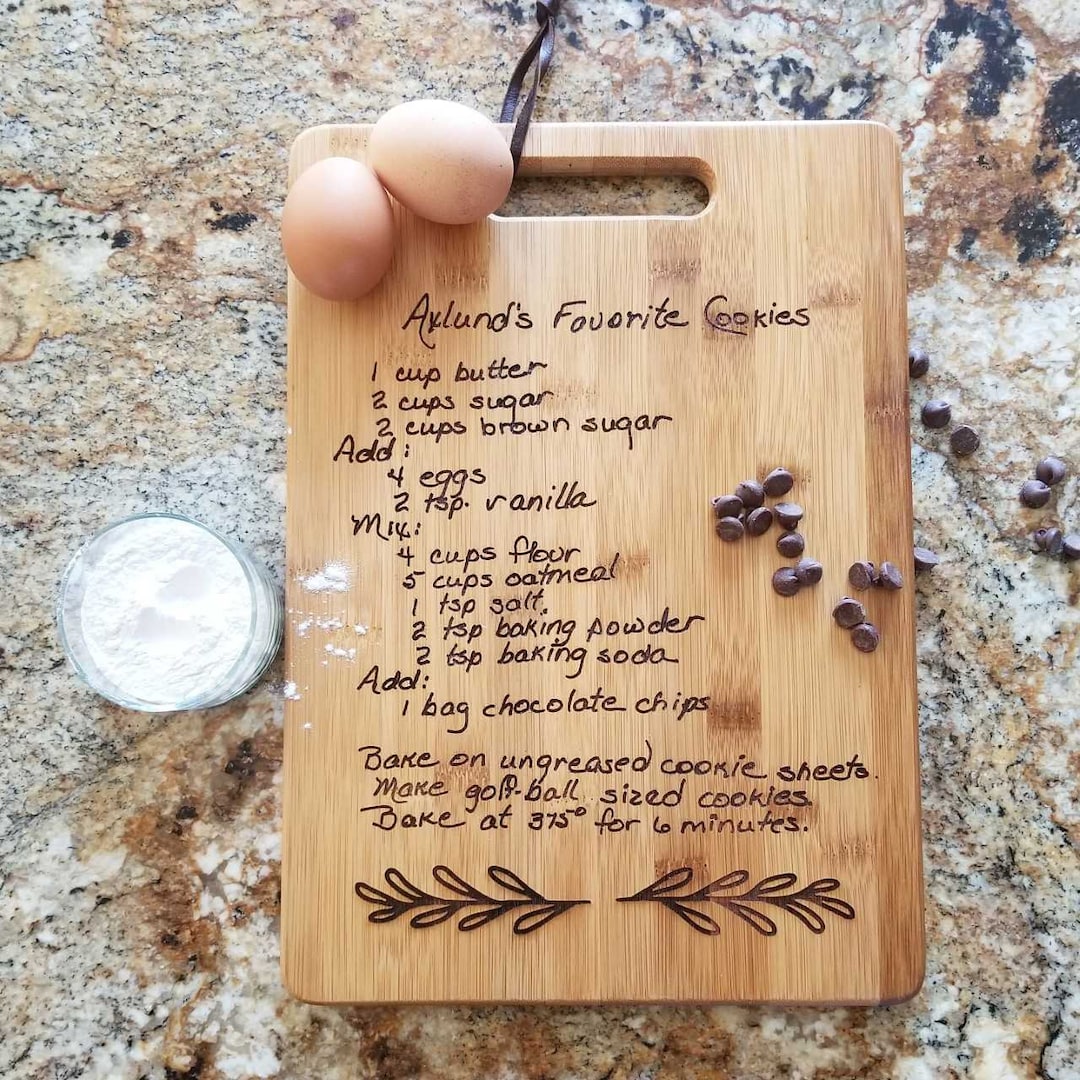 Axlund's Favorite Cookies
1 cup butter
2 cups sugar
2 cups brown sugar
Add:
4 eggs
2 tsp. vanilla
Mix:
4 cups flour
5 cups oatmeal
1 tsp salt
2 tsp baking powder
2 tsp baking soda
Add:
1 bag chocolate chips
Bake on ungreased cookie sheets.
Make golf-ball sized cookies.
Bake at 375° for 6 minutes.